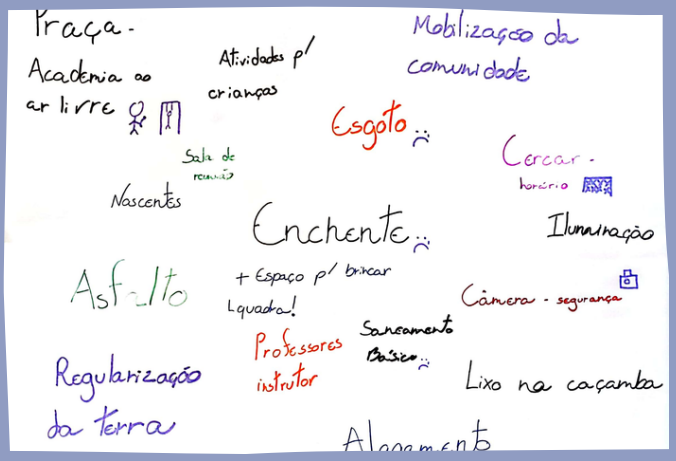 Praça.
Academia ao
ar livre
Atividades p/
crianças
Mobilização da
comunidade
Esgoto
Sala de
reunião
Cercar.
horário
Nascentes
Enchente
Iluminação
Asfalto
+ Espaço p/ brincar
Lquadra!
Câmera - segurança
Professores
instrutor
Saneamento
Básico
Regularização
da terra
Lixo na caçamba
Alagamento